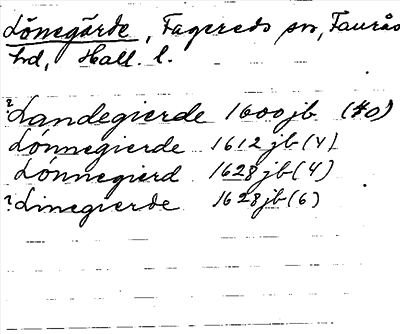 Lönegärde, Fagereds sn, Faurås
hd, Hall. l.
?Landegierde 1600 jb (40)
Lönnegierde 1612 jb (4)
Lönnegierd 1628 jb (4)
?Linegierde 1628 jb (6)